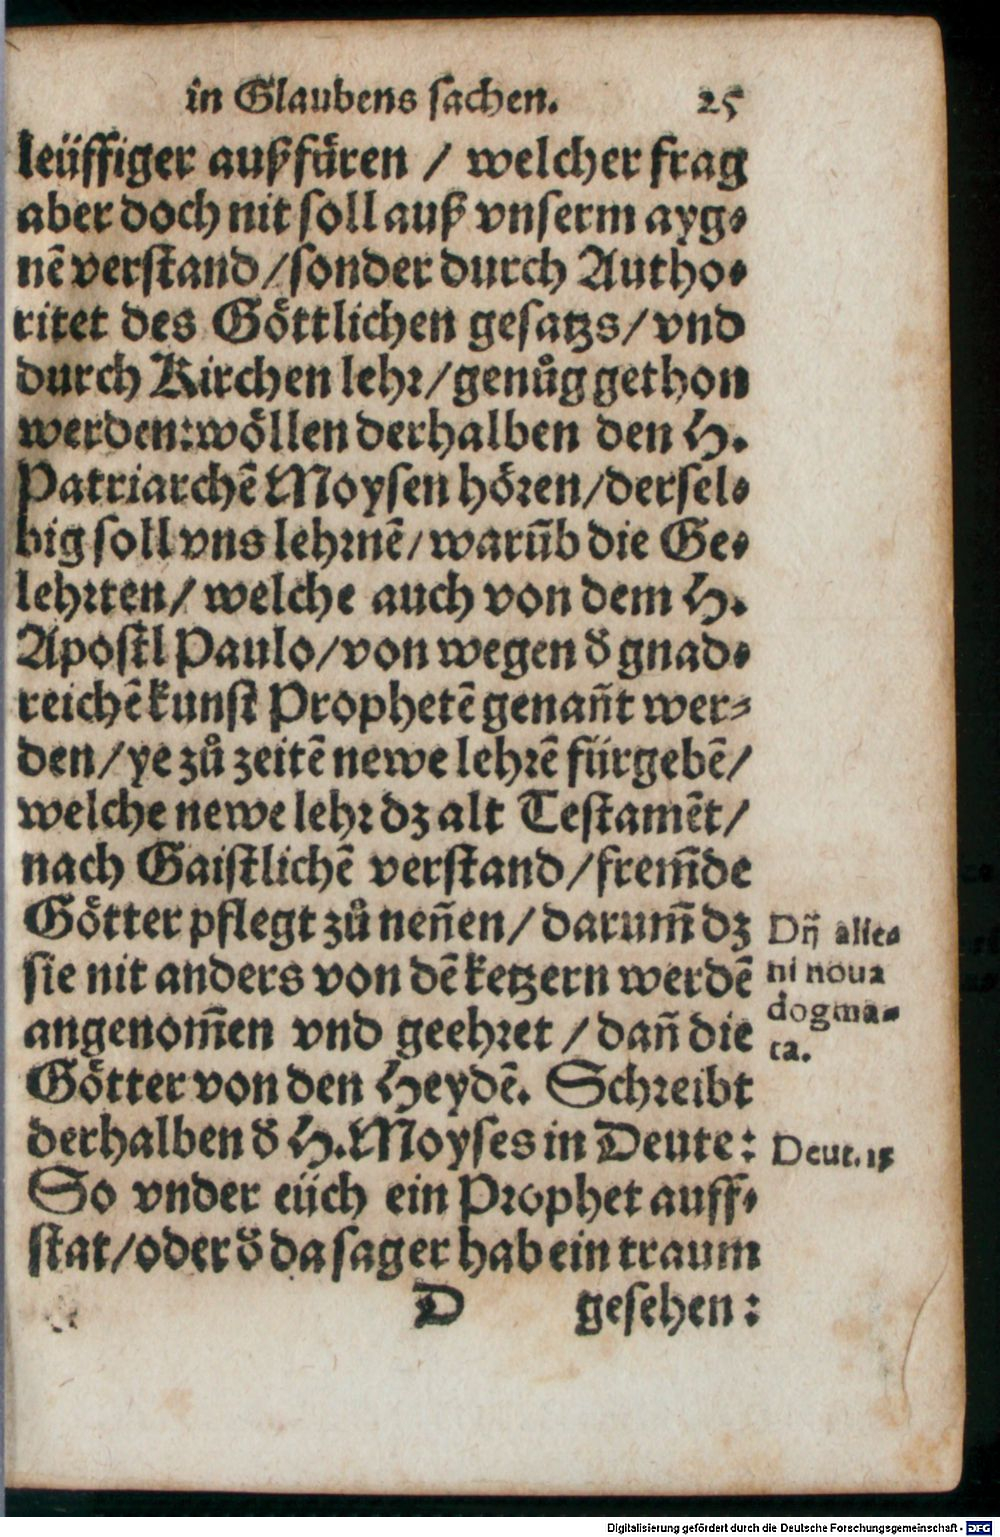 in Glaubens sachen. 25
leüffiger außfüren / welcher frag
aber doch nit soll auß vnserm ayg-
nē verstand/sonder durch Autho-
ritet des Göttlichen gesatzs/vnd
durch Kirchen lehr/genůg gethon
werden:wöllen derhalben den H.
Patriarchē Moysen hören/dersel-
big soll vns lehrnē/warūb die Ge-
lehrten/welche auch von dem H.
Apostl Paulo/von wegen d̕ gnad-
reichē kunst Prophetē genañt wer-
den/ye zů zeitē newe lehrē fürgebē/
welche newe lehr dz alt Testamēt/
nach Gaistlichē verstand/frem̄de
Götter pflegt zů neñen/darum̄ dz
sie nit anders von dē ketzern werdē
angenom̄en vnd geehret / dañ die
Götter von den Heydē. Schreibt
derhalben d̕ H. Moyses in Deute:
So vnder eüch ein Prophet auff-
stat/oder d̕ da sager hab ein traum
D gesehen:
Dij alie-
ni noua
dogma-
ta.
Deut.13
Digitalisierung gefördert durch die Deutsche Forschungsgemeinschaft - DFG